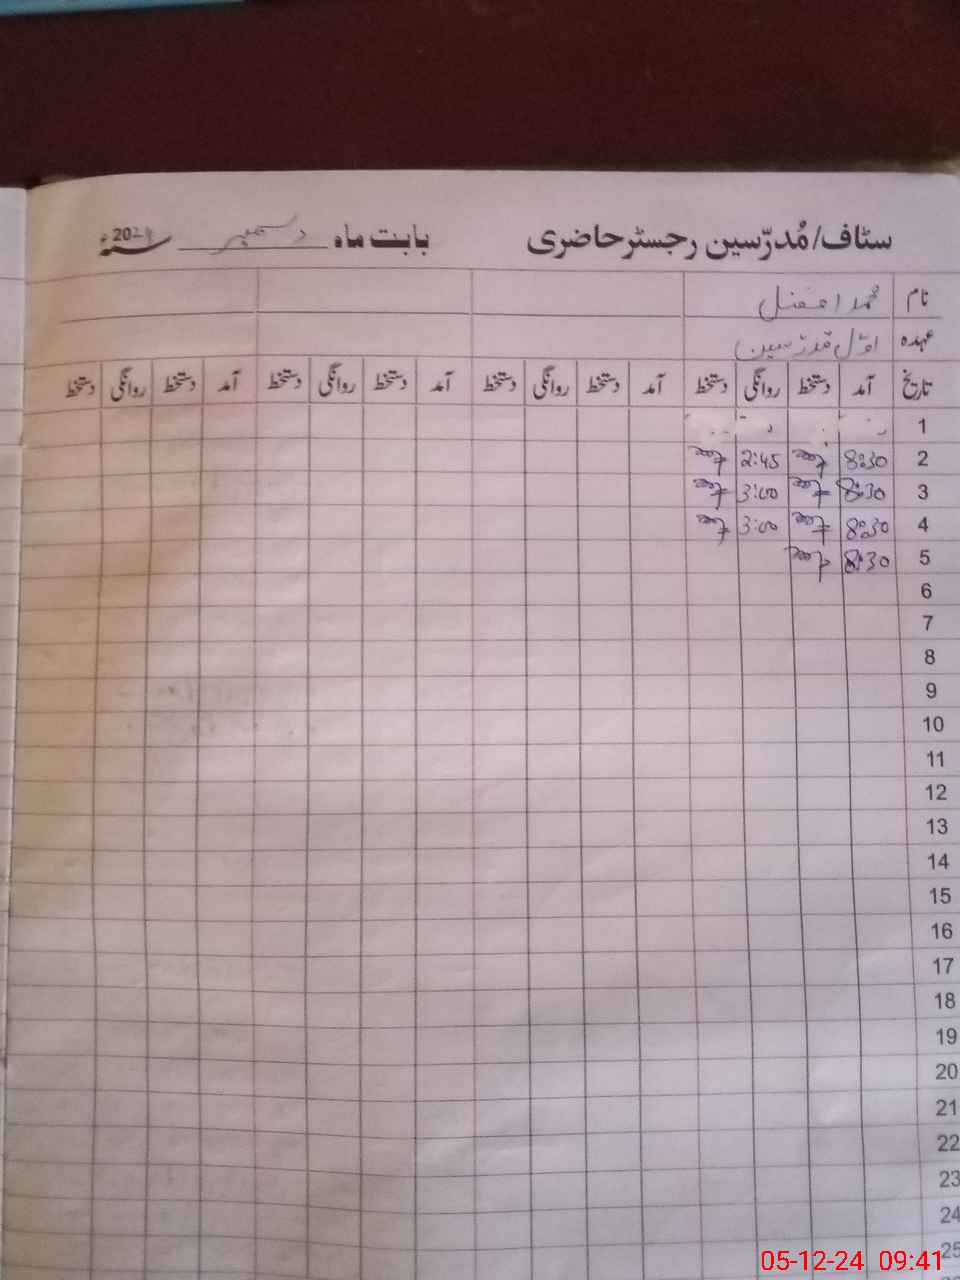 سٹاف/مُدرّسین رجسٹر حاضری بابت ماہ دسمبر 2024 سنہ
نام محمد افضل
عہدہ اوّل مدرسین
تاریخ آمد دستخط روانگی دستخط آمد دستخط روانگی دستخط آمد دستخط روانگی دستخط آمد دستخط روانگی دستخط
1
2 8:30 2:45
3 8:30 3:00
4 8:30 3:00
5 8:30
6
7
8
9
10
11
12
13
14
15
16
17
18
19
20
21
22
23
24
25
05-12-24 09:41